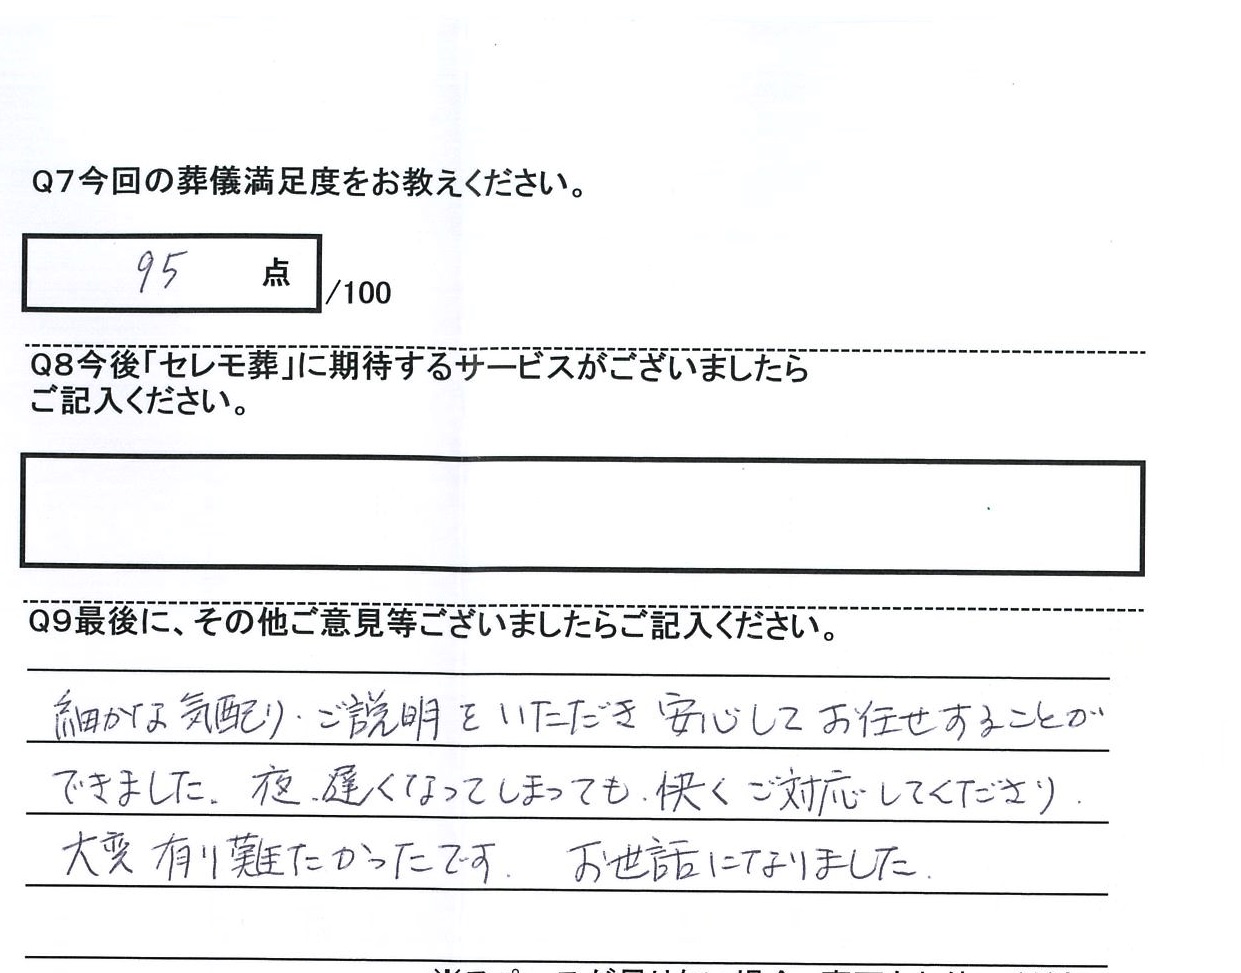 Q7今回の葬儀満足度をお教えください。
95 点 /100
Q8今後「セレモ葬」に期待するサービスがございましたら
ご記入ください。
Q9最後に、その他ご意見等ございましたらご記入ください。
細かな気配り・ご説明をいただき 安心して お任せすることが
できました。夜、遅くなってしまっても、快くご対応してくださり、
大変有り難たかったです。 お世話になりました。